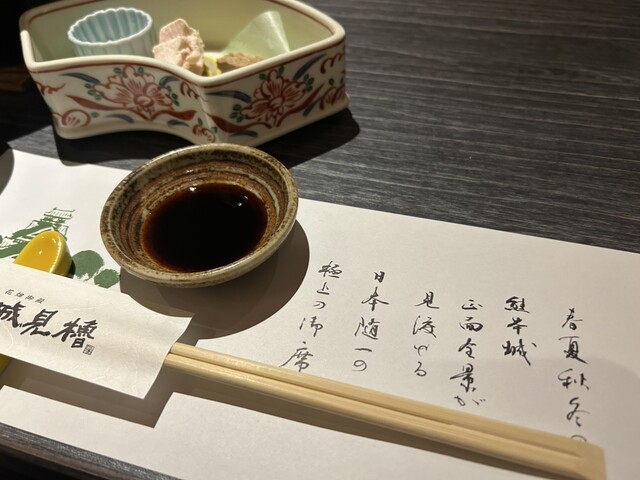 春夏秋冬の
熊本城
正面全景が
見渡せる
日本随一の
極上の御席
城見櫓